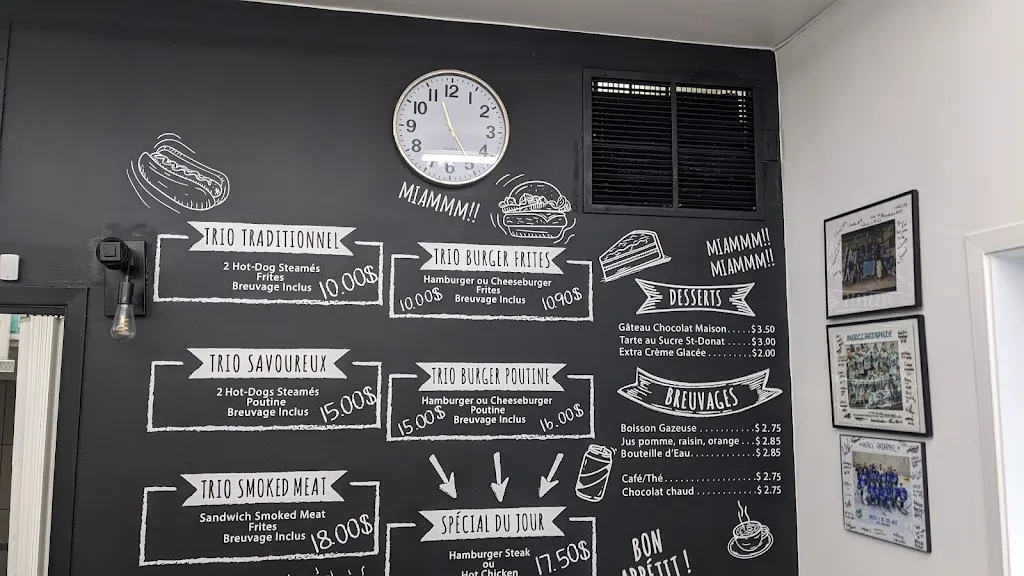 12
11
1
10
2
9
3
8
4
5
6
MIAMMM!!
TRIO TRADITIONNEL
2 Hot-Dog Steamés
Frites
Breuvage Inclus
10.00$
TRIO SAVOUREUX
2 Hot-Dogs Steamés
Poutine
Breuvage Inclus
15.00$
TRIO SMOKED MEAT
Sandwich Smoked Meat
Frites
Breuvage Inclus
18.00$
TRIO BURGER FRITES
Hamburger ou Cheeseburger
Frites
10.00$ Breuvage Inclus 10.90$
TRIO BURGER POUTINE
Hamburger ou Cheeseburger
Poutine
15.00$ Breuvage Inclus 16.00$
SPÉCIAL DU JOUR
Hamburger Steak
ou
Hot Chicken
17.50$
MIAMMM!!
MIAMMM!!
DESSERTS
Gâteau Chocolat Maison.....$3.50
Tarte au Sucre St-Donat....$3.00
Extra Crème Glacée.........$2.00
BREUVAGES
Boisson Gazeuse..........$2.75
Jus pomme, raisin, orange...$2.85
Bouteille d'Eau.............$2.85
Café/Thé.................$2.75
Chocolat chaud...........$2.75
BON
APPÉTIT!